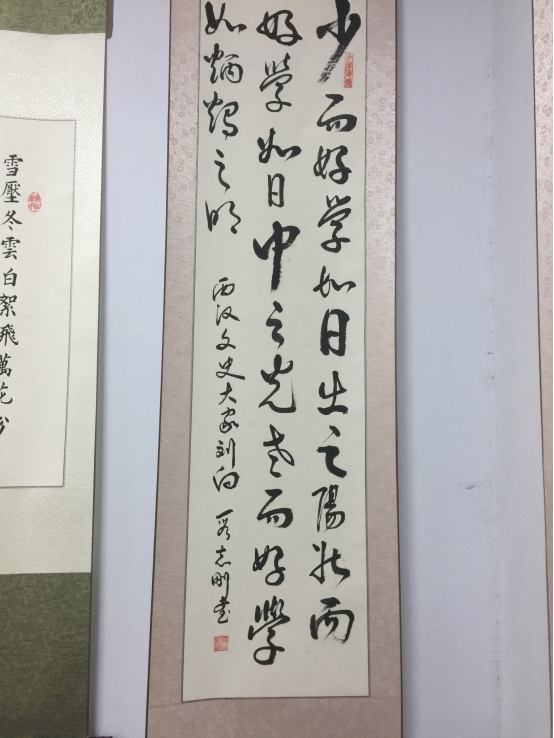 少而好学如日出之陽壮而
好學如日中之光老而好學
如炳燭之明
西汉文史大家刘向
志刚书
雪壓冬雲白絮飛萬花